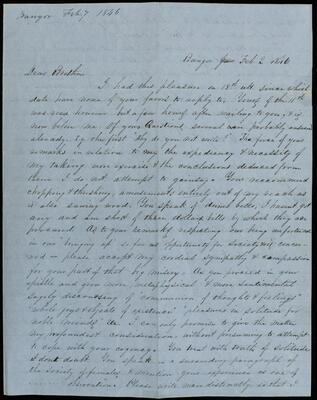 Bangor Feb. 7 1846
Bangor Feb 2 1846
Dear Brother
I had this pleasure on 18th ult since which
date have none of your favors to reply to. Yours of the 11th
was recd however but a few hours after writing to you, & is
now before me. Of your questions several were probably answered
already by the first "Why do you not write?" The force of your
remarks in relation to my the expediency & necessity of
my taking more exercise & the conclusions deduced from
them I do not attempt to gainsay. You recommend
chopping & thrashing, amusements entirely out of my reach as
is also sawing wood. You speak of drink, I havent got
any and am short of those dollar bills by which they are
procured. As to your remarks respecting our being unfortunate
in our "bringing up" so far as opportunity for society was concerned
please accept my cordial sympathy & compassion
for your part of that big misery. As you proceed in your
epistle and grow more metaphysical & more sentimental
sagely discoursing of "communion of thoughts & feelings"
"whole joys & objects of existence" pleasures in solitude for
noble minds &c. I can only promise to give the matter
my profoundest consideration without presuming to attempt
to cope with your cogency. You treat with truth of solitude
I dont doubt. You speak in a succeeding paragraph of
the Society of females & mention your experience as one of
observation. Please write more distinctly so that I